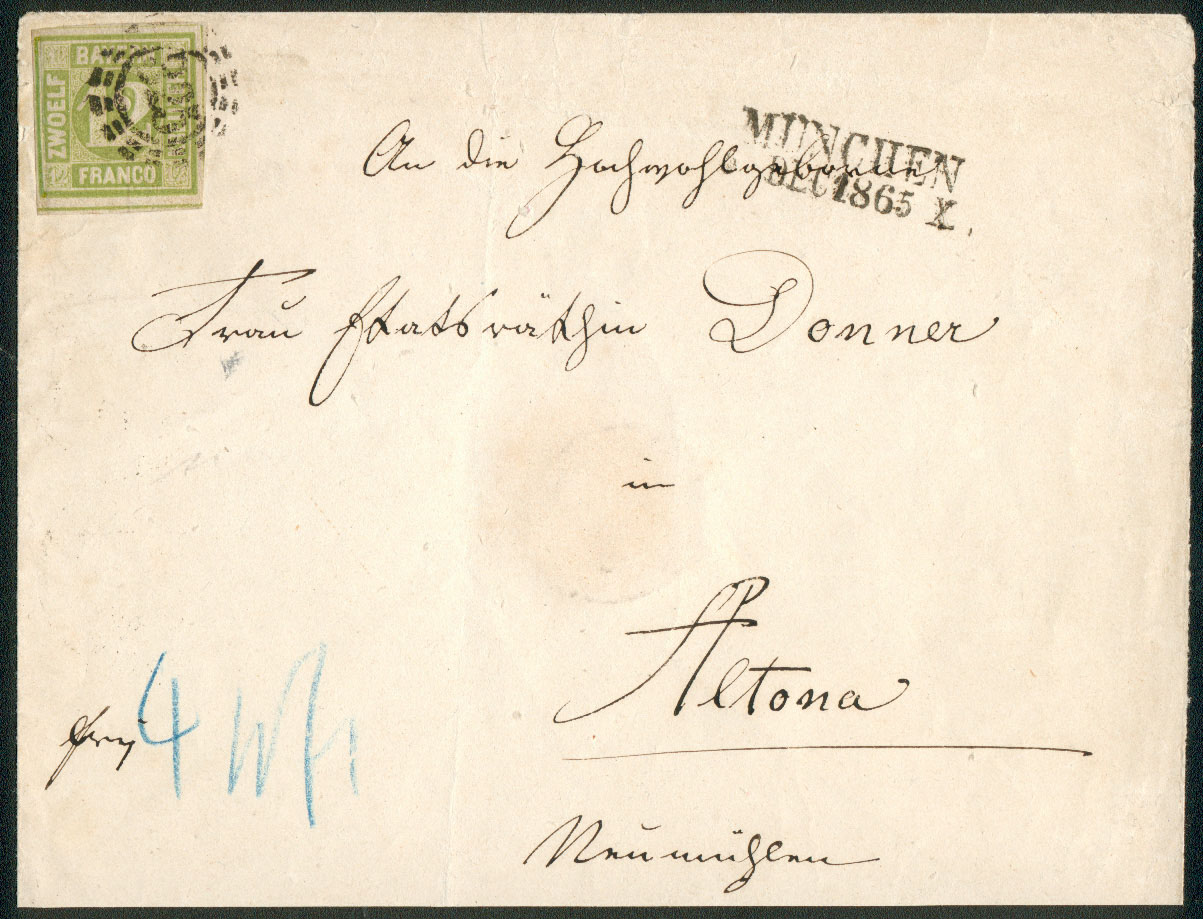 BAYERN
ZWOELF
FRANCO
12
MÜNCHEN
DEC 1865 X.
An die Hochwohlgeborne
Frau Etatsräthin Donner
in
Altona
frey
4 Wf
Neumühlen